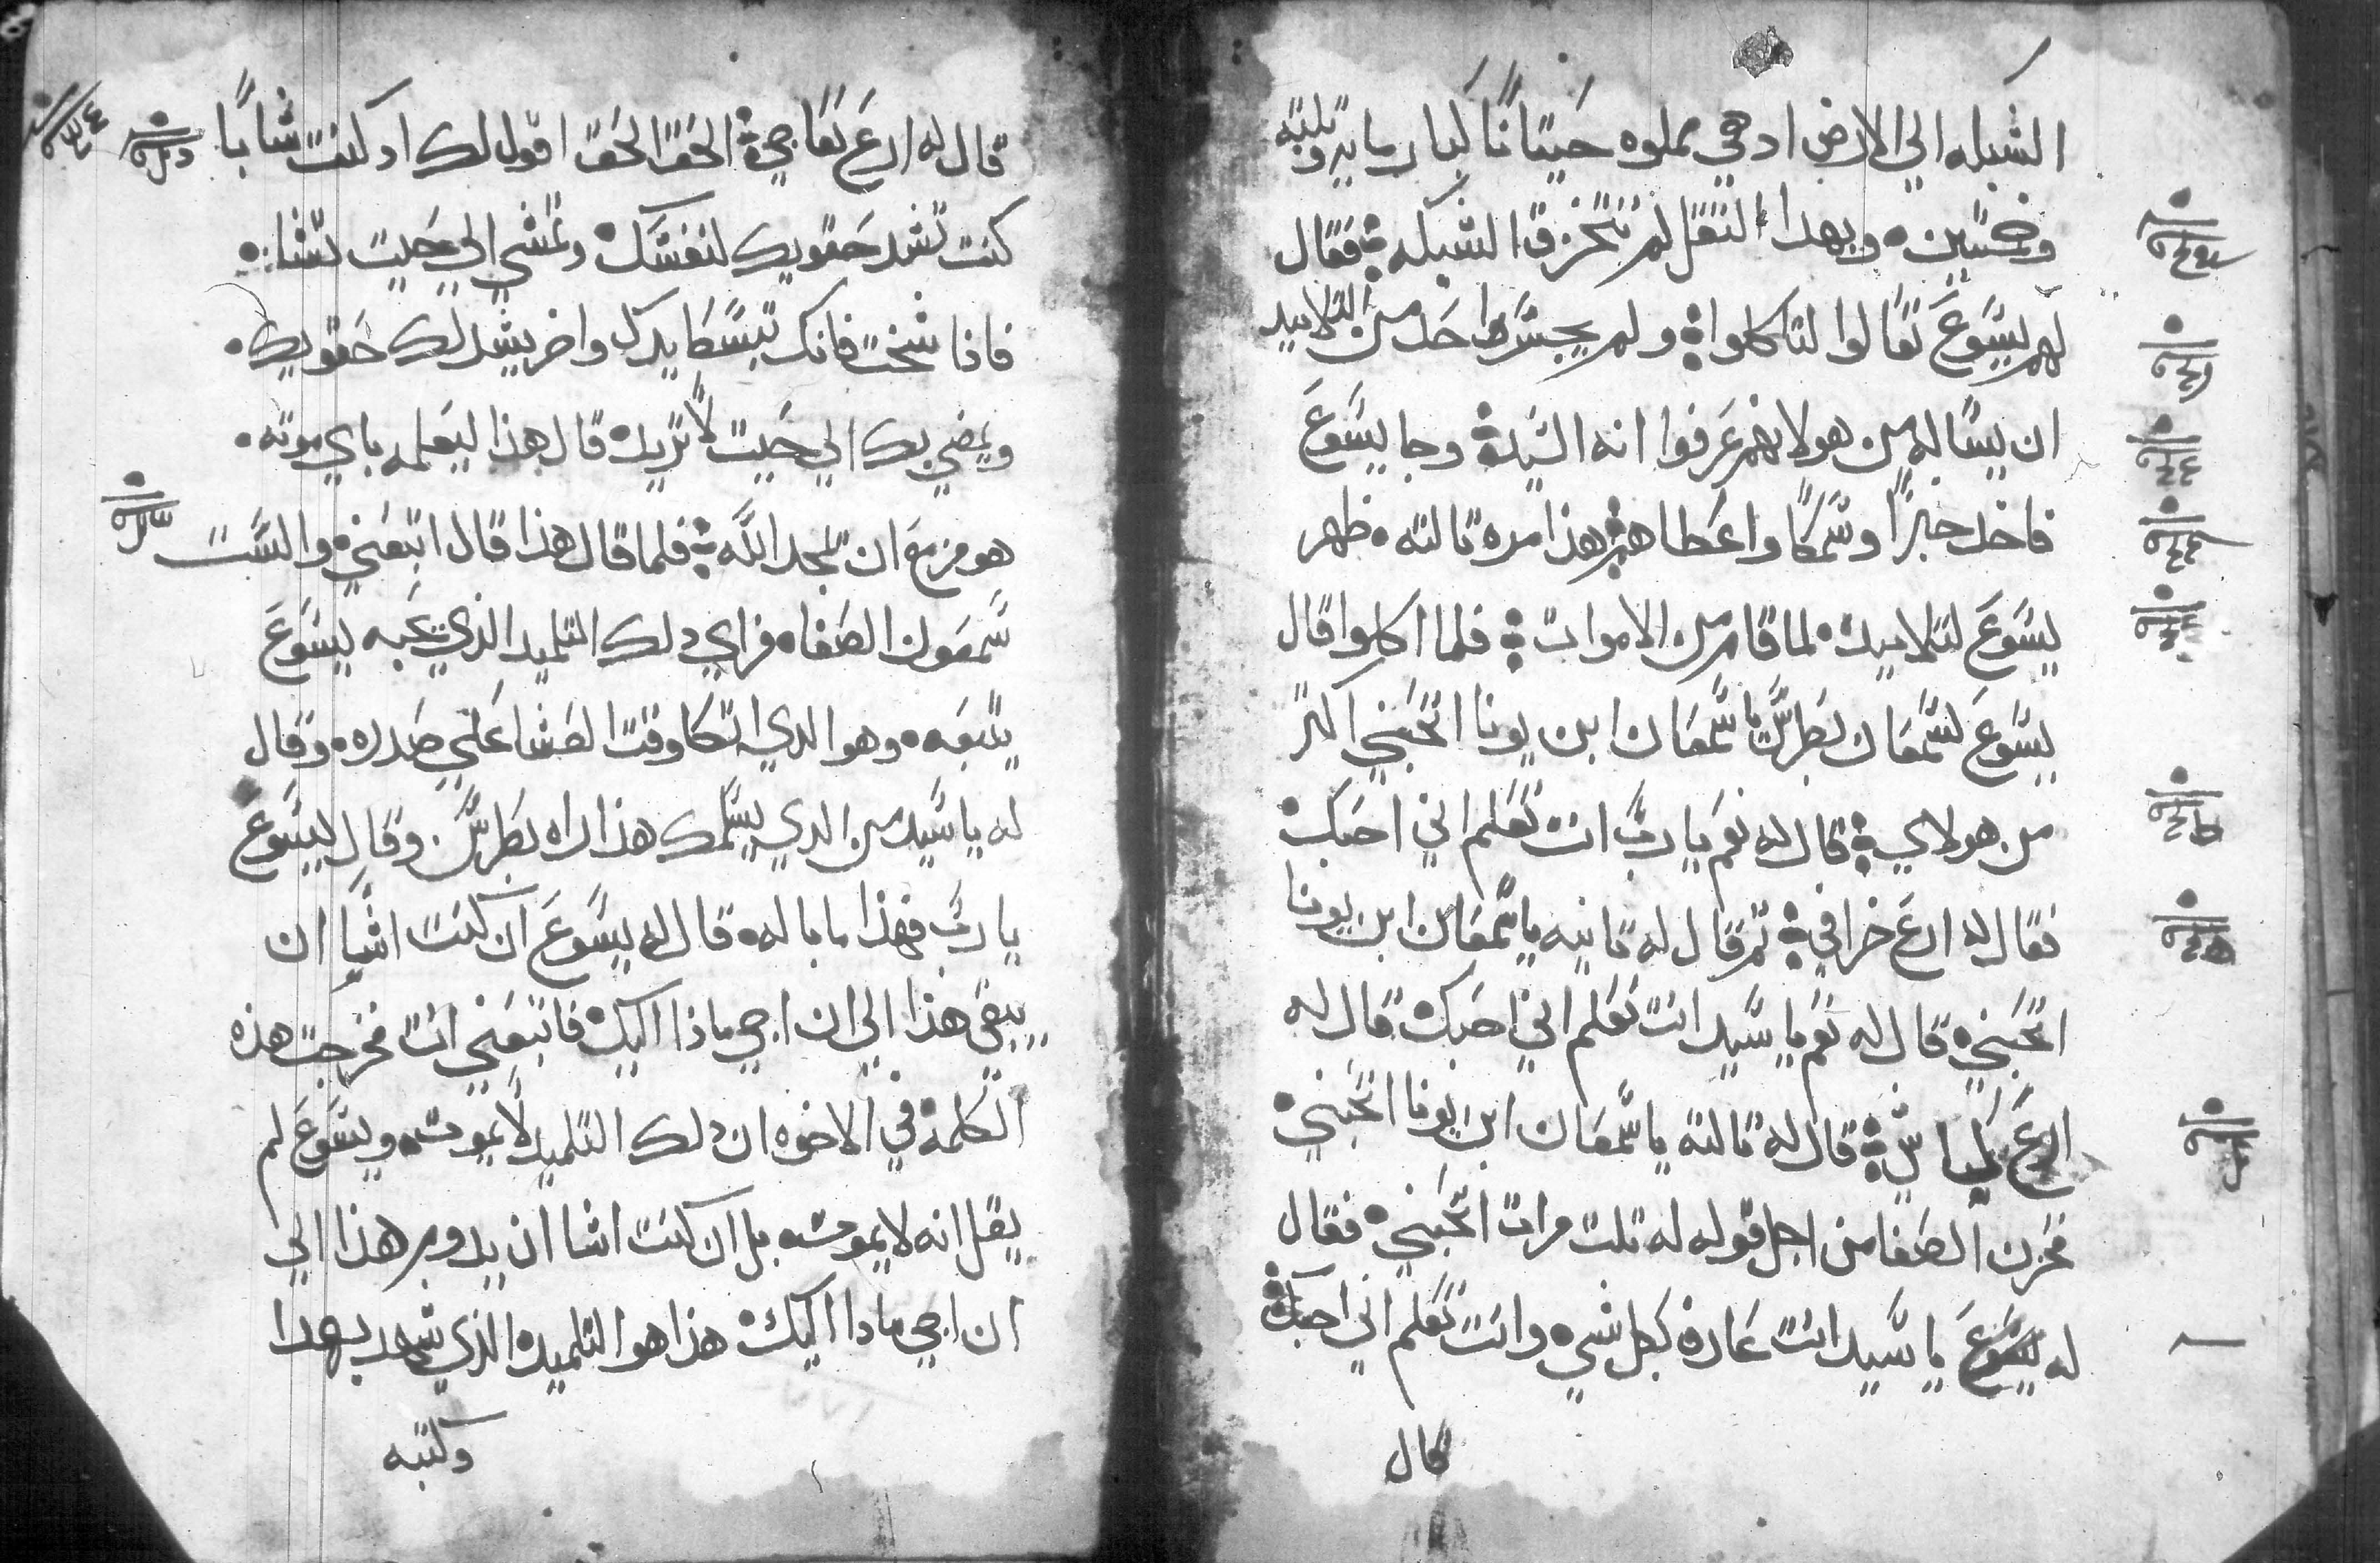 الشبكه الي الارض اد هي مملوه حيتانًا كبار مايه وتلته
وخمسين وبهدا التقل لم تتخرق الشبكه فقال
لهم يسوع تعالوا لتاكلوا ولم يجسر احد من التلاميد
ان يساله من هو لانهم عرفوا انه السيد وجا يسوع
فاخد خبزًا وسمكًا واعطاهم هذا مره تالته ظهر
يسوع لتلاميده لما قام من الاموات فلما اكلوا قال
يسوع لسمعان بطرس يا سمعان ابن يونا اتحبني اكتر
من هولاي قال له نعم يا رب انت تعلم اني احبك
فقال له ارع خرافي تم قال له تانيه يا سمعان ابن يونا
اتحبني قال له نعم يا سيد انت تعلم اني احبك قال له
ارع كباشي قال له تالته يا سمعان ابن يونا اتحبني
فحزن الصفا من اجل قوله له تلت مرات اتحبني فقال
له يسوع يا سيد انت عارف بكل شي وانت تعلم اني احبك
قال
قال له ارع نعاجي الحق الحق اقول لك اد كنت شابًا
كنت تشد حقويك لنفسك وتمشي الي حيت تشا
فاذا شخت فانك تبسط يدك واخر يشد لك حقويك
ويمضي بك الي حيت لا تريد قال هذا ليعلمه باي موته
هو مزمع ان يمجد الله فلما قال هذا قال اتبعني والتفت
سمعون الصفا فراي دلك التلميد الذي يحبه يسوع
يتبعه وهو الدي اتكا وقت العشا علي صدره وقال
له يا سيد من الدي يسلمك هذا راه بطرس وقال ليسوع
يا رب فهذا ما باله قال له يسوع ان كنت اشيا ان
يبقي هذا الي ان اجي ماذا اليك فاتبعني انت فخرجت هذه
الكلمة في الاخوه ان دلك التلميد لا يموت ويسوع لم
يقل انه لا يموت بل ان كنت اشا ان يدوم هذا الي
ان اجي مادا اليك هذا هو التلميد الذي شهد بهدا
وكتبه